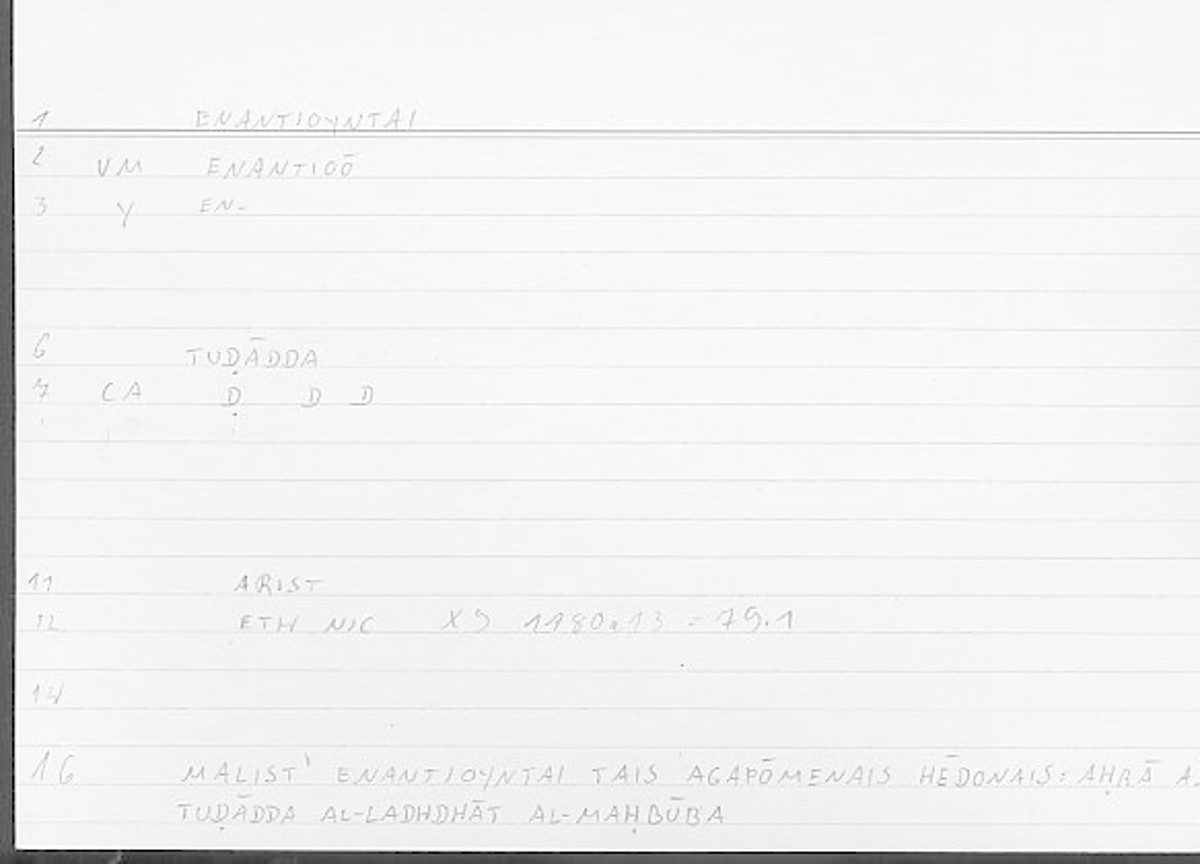 1 ENANTIOYNTAI
2 VM ENANTIOŌ
3 Y EN-
6 TUḌĀDDA
7 CA Ḍ D D
11 ARIST
12 ETH NIC X 9 1180a13 = 79.1
14
16 MALIST' ENANTIOYNTAI TAIS AGAPŌMENAIS HĒDONAIS: AḤRĀ A
TUḌĀDDA AL-LADHDHĀT AL-MAḤBŪBA